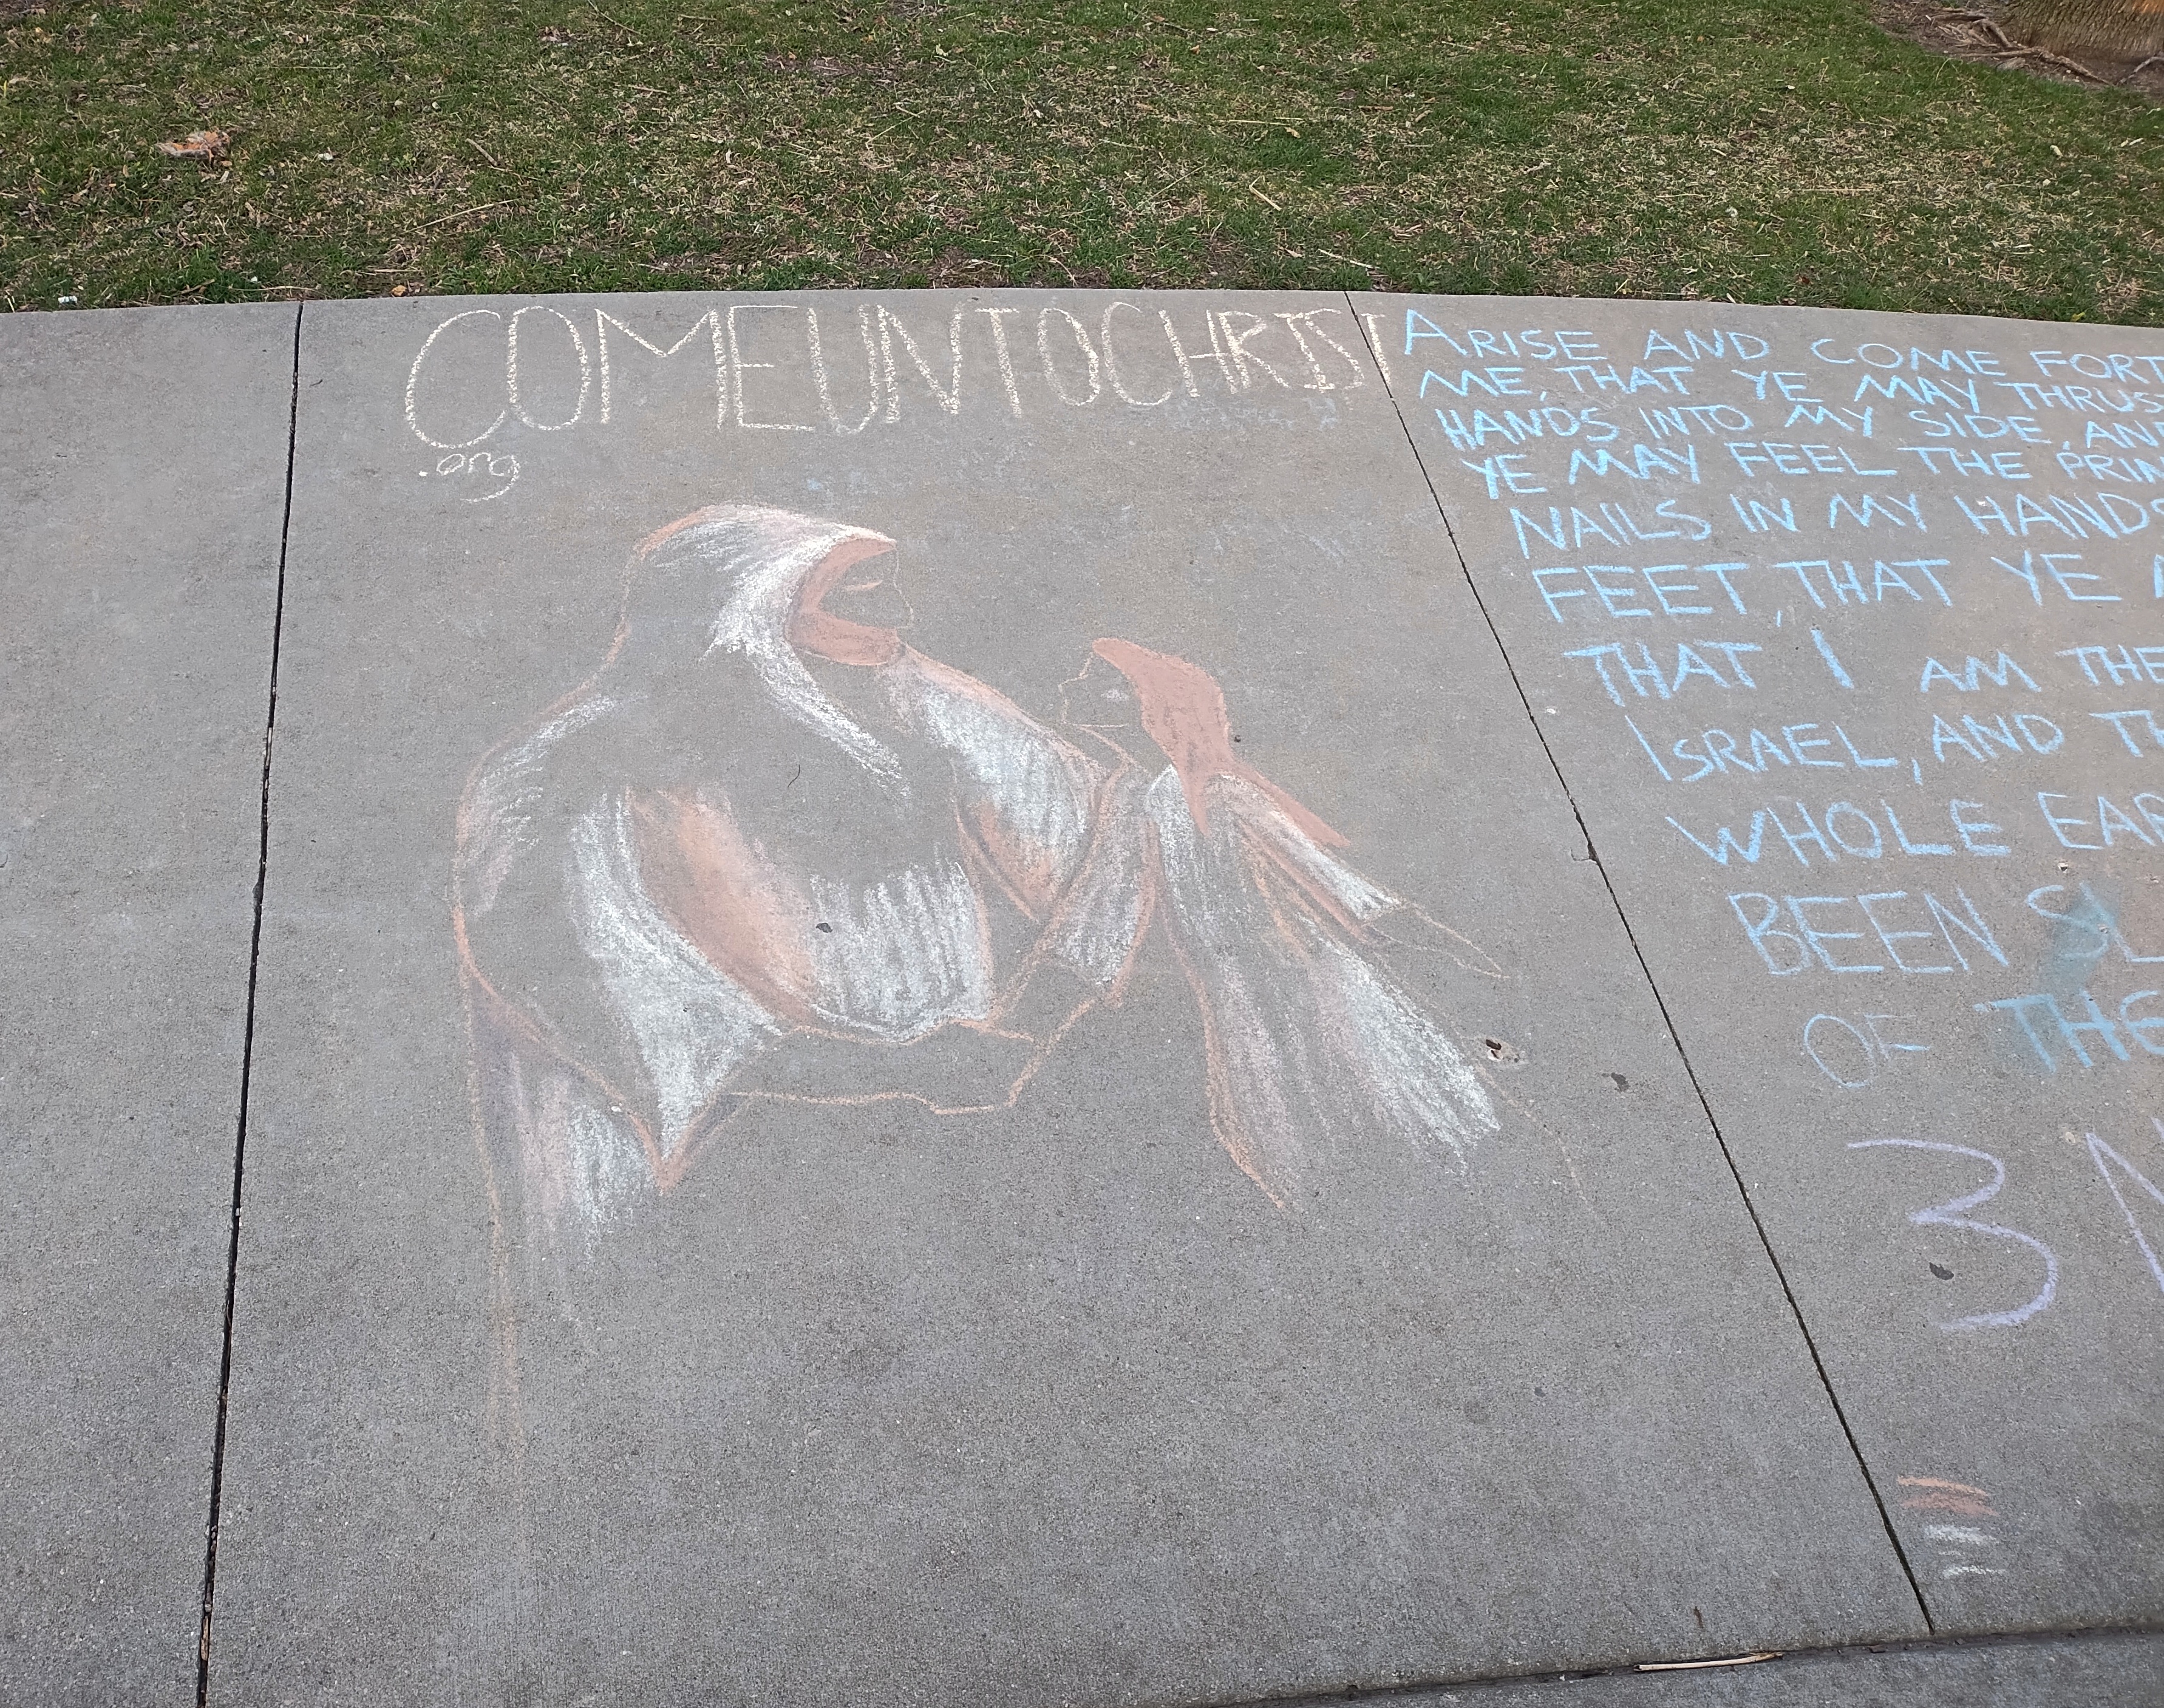 COMEUNTOCHRIST
.org
ARISE AND COME FORT
ME, THAT YE MAY THRUS
HANDS INTO MY SIDE, AN
YE MAY FEEL THE PRIN
NAILS IN MY HANDS
FEET, THAT YE
THAT I AM THE
ISRAEL, AND TH
WHOLE EAR
BEEN SL
OF THE
3 N